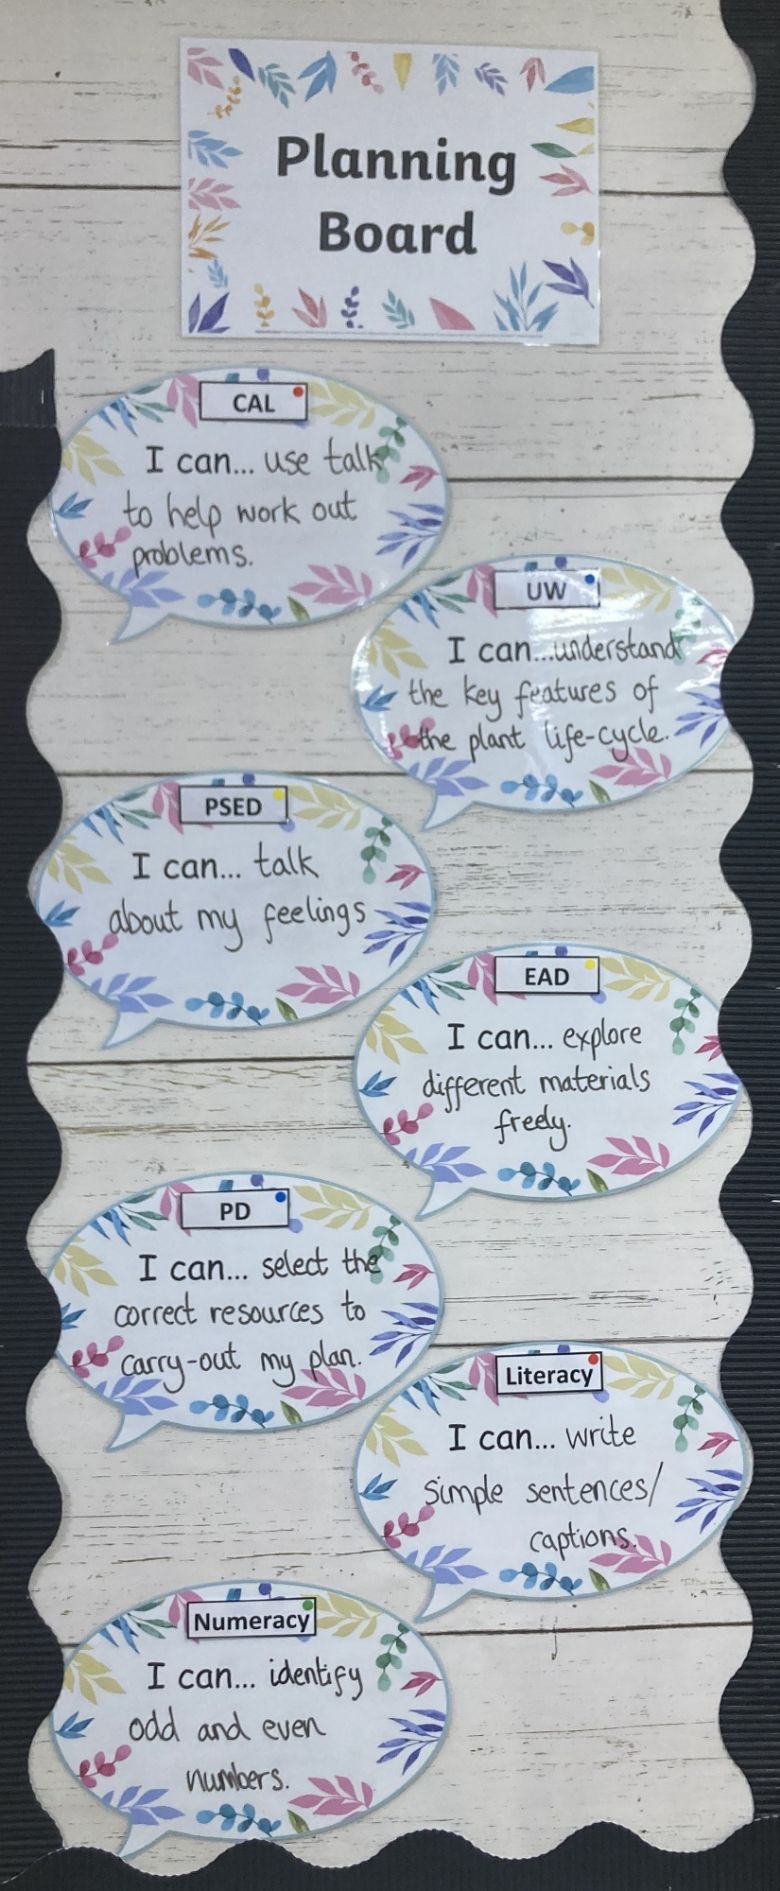 Planning
Board
CAL
I can... use talk
to help work out
problems.
UW
I can...understand
the key features of
the plant life-cycle.
PSED
I can... talk
about my feelings
EAD
I can... explore
different materials
freely.
PD
I can... select the
correct resources to
carry-out my plan.
Literacy
I can... write
simple sentences/
captions.
Numeracy
I can... identify
odd and even
numbers.